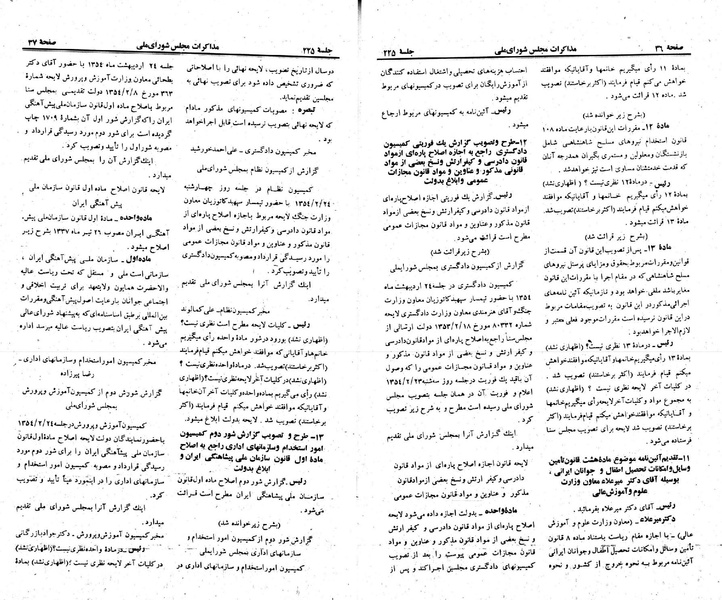 صفحهٔ ۳۶ مذاکرات مجلس شورای‌ملی جلسهٔ ۲۲۵
بمادهٔ ۱۱ رأی میگیریم خانمها وآقایانیکه موافقند
خواهش میکنم قیام فرمایند (اکثر برخاستند) تصویب
شد . ماده ۱۲ قرائت میشود .
(بشرح زیر خوانده شد)
ماده ۱۲ـ مقررات این قانون بارعایت ماده ۱۰۸
قانون استخدام نیروهای مسلح شاهنشاهی شامل
بازنشستگان ومعلولین و مستمری بگیران همدرجه آنان
که قدمت خدمتشان مساوی است نیز خواهدشد .
رئیس ـ درمادهٔ۱۲ نظری نیست ؟ (اظهاری‌نشد)
بمادهٔ ۱۲ رأی میگیریم خانمها و آقایانیکه موافقند
خواهش میکنم قیام فرمایند (اکثر برخاستند)تصویب‌شد.
مادهٔ ۱۳ قرائت میشود .
(بشرح زیر قرائت شد)
ماده ۱۳ـ از تصویب این قانون آن قسمت از
قوانین ومقررات مربوط بحقوق ومزایای پرسنل نیروهای
مسلح شاهنشاهی که در مقام اجرا با مقررات این قانون
مغایر باشد ملغی خواهد بود و مادامیکه آئین نامه‌های
اجرائی مذکور در این قانون به تصویب مقامات مربوط
در این قانون نرسیده است مقررات موجود فعلی معتبر و
لازم‌الاجرا خواهدبود.
رئیس ـ در ماده ۱۳ نظری نیست؟ (اظهاری نشد)
بمادهٔ ۱۳ رأی‌میگیریم‌خانمهاوآقایانیکه موافقندخواهش
میکنم قیام فرمایند (اکثر برخاستند) تصویب شد .
در کلیات آخر نظری نیست ؟ (اظهاری نشد)
به مجموع مواد و کلیات آخر لایحه رأی میگیریم‌خانمها
و آقایانیکه موافقند خواهش میکنم قیام فرمایند (اکثر
برخاستند) تصویب شد لایحه برای تصویب مجلس سنا
ابلاغ میشود .
۱۱ـ تقدیم آئین‌نامه موضوع مادهٔ هشت قانون تأمین
وسایل وامکانات تحصیل اطفال و جوانان ایرانی ،
بوسیله آقای دکتر میرعلاء معاون وزارت
علوم وآموزش‌عالی
رئیس ـ آقای دکتر میرعلاء بفرمائید .
دکترمیرعلاءـ (معاون وزارت علوم و آموزش
عالی) ـ با اجازه مقام ریاست باستناد ماده ۸ قانون
تأمین وسائل و امکانات تحصیل اطفال وجوانان ایرانی
آئین نامه مربوط به نحوه خروج از کشور و نحوه
احتساب هزینه‌های تحصیلی واشتغال استفاده کنندگان
از آموزش رایگان برای تصویب در کمیسیونهای مربوط
تقدیم میشود .
رئیس ـ آئین‌نامه به کمیسیونهای مربوط ارجاع
میشود.
۱۲ـ طرح و تصویب گزارش یک فوریتی کمیسیون
دادگستری راجع به اجازه اصلاح پاره‌ای از مواد
قانون دادرسی و کیفر ارتش و نسخ بعضی از مواد
قانونی مذکور و عناوین و مواد قانون مجازات
عمومی وابلاغ بدولت
رئیس ـ گزارش یک فوریتی اجازه اصلاح پاره‌ای
از مواد قانون دادرسی و کیفر ارتش و نسخ بعضی از مواد
قانون مذکور و عناوین و مواد قانون مجازات عمومی
مطرح است قرائت میشود .
(بشرح زیرقرائت شد)
گزارش از کمیسیون دادگستری به مجلس شورایملی
کمیسیون دادگستری در جلسه ۲۴ اردیبهشت ماه
۱۳۵۴ با حضور تیمسار سپهبد کاتوزیان معاون وزارت
جنگ و آقای هرمندی معاون وزارت دادگستری لایحه
شماره ۸۰۳۳۲ مورخ ۱۳۵۳/۲/۱۸ دولت ارسالی از
مجلس سنا راجع به اصلاح پاره‌ای از مواد قانون دادرسی
و کیفر ارتش و نسخ بعضی از مواد قانون مذکور و
عناوین و مواد قانون مجازات عمومی را که وصول
آن باقید یک فوریت در جلسه روز سه‌شنبه ۱۳۵۴/۲/۲۳
اعلام و فوریت آن در همان جلسه بتصویب مجلس
شورای ملی رسیده است مطرح و به شرح زیر تصویب
نمود .
اینک گزارش آنرا به مجلس شورای ملی تقدیم
میدارد.
لایحه قانون اجازه اصلاح پاره‌ای از مواد قانون
دادرسی و کیفر ارتش و نسخ بعضی از مواد قانون
مذکور و عناوین و مواد قانون مجازات عمومی
ماده‌واحده ـ بدولت اجازه داده میشود لایحه
اصلاح پاره‌ای از مواد قانون دادرسی و کیفر ارتش
و نسخ بعضی از مواد قانون مذکور و عناوین و مواد
قانون مجازات عمومی پیوست را بعد از تصویب
کمیسیونهای دادگستری مجلسین اجراکند و پس از
جلسهٔ ۲۲۵ مذاکرات مجلس شورای‌ملی صفحهٔ ۳۷
دو سال از تاریخ تصویب ، لایحه نهائی را با اصلاحاتی
که ضروری تشخیص داده شود برای تصویب نهائی به
مجلسین تقدیم نماید.
تبصره ـ مصوبات کمیسیونهای مذکور مادام
که لایحه نهائی بتصویب نرسیده است قابل اجراخواهد
بود .
مخبر کمیسیون دادگستری ـ علی‌احمدخورشید
گزارش از کمیسیون نظام به مجلس شورای‌ملی
کمیسیون نظام در جلسه روز چهارشنبه
۱۳۵۴/۲/۲۴ با حضور تیمسار سپهبدکاتوزیان معاون
وزارت جنگ لایحه مربوط باجازه اصلاح پاره‌ای از
مواد قانون دادرسی و کیفر ارتش و نسخ بعضی از مواد
قانون مذکور و عناوین و مواد قانون مجازات عمومی
را مورد رسیدگی قرارداد ومصوبه کمیسیون دادگستری
را تأیید وتصویب کرد .
اینک گزارش آنرا بمجلس شورای ملی تقدیم
میدارد.
مخبر کمیسیون نظام ـ علی کمالوند
رئیس ـ کلیات لایحه مطرح است نظری نیست؟
(اظهاری نشد) ورود در شور مادهٔ واحده رأی میگیریم
خانم‌هاوآقایانیکه موافقند خواهش میکنم قیام فرمایند
(اکثر برخاستند) تصویب شد. در مادهٔ واحده نظری نیست؟
(اظهاری نشد)درکلیات آخرلایحه‌نظری‌نیست؟(اظهاری
نشد) رأی میگیریم بماده‌واحده وکلیات آخرآن‌خانمها
وآقایانیکه موافقند خواهش میکنم قیام فرمایند (اکثر
برخاستند) تصویب شد. لایحه به دولت ابلاغ میشود.
۱۳ـ طرح و تصویب گزارش شور دوم کمیسیون
امور استخدام وسازمانهای اداری راجع به اصلاح
مادهٔ اول قانون سازمان ملی پیشاهنگی ایران و
ابلاغ بدولت
رئیس ـ گزارش شور دوم اصلاح ماده اول‌قانون
سازمان ملی پیشاهنگی ایران مطرح است قرائت
میشود.
(بشرح زیرخوانده شد)
گزارش شور دوم از کمیسیون امور استخدام و
سازمانهای اداری به مجلس شورایملی
کمیسیون امور استخدام و سازمانهای اداری در
جلسه ۲۴ اردیبهشت ماه ۱۳۵۴ با حضور آقای دکتر
بطحائی معاون وزارت آموزش وپرورش لایحه شمارهٔ
۳۶۳ مورخ ۱۳۵۴/۲/۸ دولت تقدیمی مجلس سنا
مربوط باصلاح ماده اول‌قانون سازمان ملی‌پیش‌آهنگی
ایران را که گزارش شور اول آن بشمارهٔ ۱۷۰۹ چاپ
گردیده است برای شور دوم مورد رسیدگی قرارداد و
مصوبه شور اول را تصویب کرد.
اینک گزارش آن را بمجلس شورای ملی تقدیم
میدارد .
لایحه قانون اصلاح ماده اول قانون سازمان ملی
پیش آهنگی ایران
مادهٔ‌واحده ـ ماده اول قانون سازمان ملی پیش
آهنگی ایران مصوب ۲۶ تیر ماه ۱۳۳۷ بشرح زیر
اصلاح میشود.
ماده‌اول ـ سازمان ملی پیش‌آهنگی ایران ،
سازمانی است ملی و مستقل که تحت ریاست عالیه
والاحضرت همایون ولایتعهد برای تربیت اخلاقی و
اجتماعی جوانان بارعایت اصول پیش‌آهنگی ومقررات
بین‌المللی برطبق اساسنامه‌ای که به‌پیشنهاد شورای‌عالی
پیش آهنگی ایران بتصویب ریاست عالیه میرسد اداره
میشود .
مخبر کمیسیون امور استخدام و سازمانهای اداری ـ
رضا پیرزاده
گزارش شور دوم از کمیسیون آموزش وپرورش
بمجلس شورای‌ملی
کمیسیون آموزش وپرورش درجلسه ۱۳۵۴/۲/۲۴
باحضور نمایندگان دولت لایحه اصلاح مادهٔ اول‌قانون
سازمان ملی پیش‌آهنگی ایران را مورد رسیدگی
قرارداد و مصوبه کمیسیون امور استخدام و سازمانهای
اداری را در این مورد عیناً تأیید و تصویب
کرد .
اینک گزارش آن را بمجلس شورای ملی تقدیم
میدارد.
مخبر کمیسیون آموزش وپرورش ـ دکترجوادبازرگانی
رئیس ـ درمادهٔ واحده نظری نیست؟ (اظهاری‌نشد)
درکلیات آخر لایحه نظری نیست ؟ (اظهاری نشد) بمادهٔ